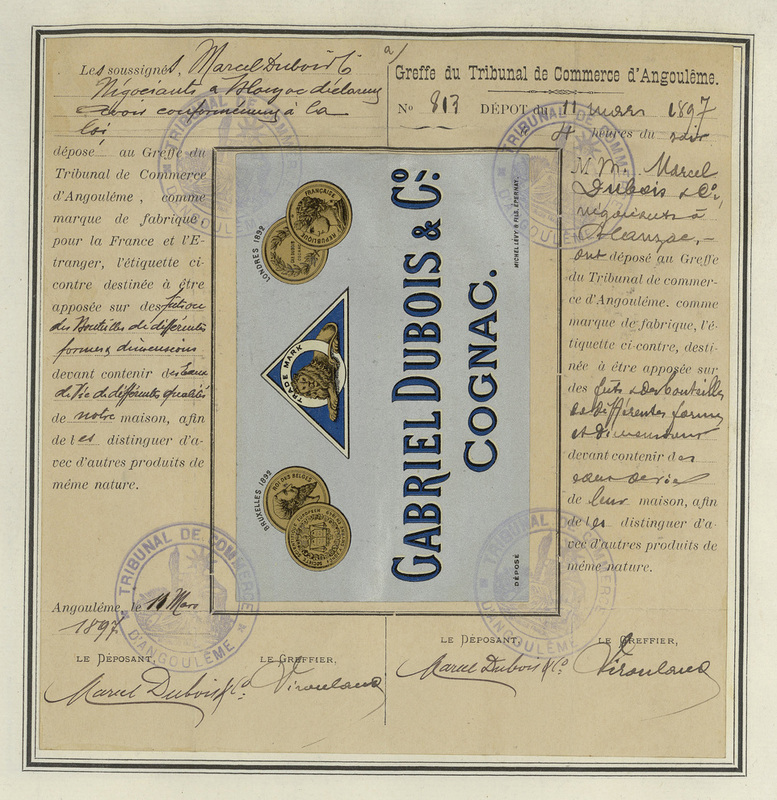 Les soussignés, Marcel Dubois & Cº
Négociants à Blanzac déclarons
avoir conformément à la
loi
déposé au Greffe du
Tribunal de Commerce
d'Angoulême, comme
marque de fabrique
pour la France et l'E-
tranger, l'étiquette ci-
contre destinée à être
apposée sur des futs ou
des Bouteilles de différentes
formes & dimensions
devant contenir des Eaux
de Vie de différentes qualités
de notre maison, afin
de les distinguer d'a-
vec d'autres produits de
même nature.
Angoulême, le 11 Mars
1897
LE DÉPOSANT,
LE GREFFIER,
Marcel Dubois & Cº
a/
Greffe du Tribunal de Commerce d'Angoulême.
Nº 813 DÉPOT du 11 mars 1897
4 heures du soir
M.M. Marcel
Dubois & Cº,
négociants à
Blanzac,
ont déposé au Greffe
du Tribunal de commer-
ce d'Angoulême, comme
marque de fabrique, l'é-
tiquette ci-contre, desti-
née à être apposée sur
des futs & des bouteilles
de différentes formes
et dimensions
devant contenir des
eaux de vie
de leur maison, afin
de les distinguer d'a-
vec d'autres produits de
même nature.
LE DÉPOSANT,
LE GREFFIER,
Marcel Dubois & Cº
GABRIEL DUBOIS & Cº
COGNAC.
LONDRES 1892
TRADE MARK
BRUXELLES 1892
MICHEL LÉVY & FILS, ÉPERNAY.
DÉPOSÉ
FRANÇAISE
ROI DES BELGES
TRIBUNAL DE COMMERCE
D'ANGOULÊME
TRIBUNAL DE COMMERCE
D'ANGOULÊME
TRIBUNAL DE COMMERCE
D'ANGOULÊME
TRIBUNAL DE COMMERCE
D'ANGOULÊME